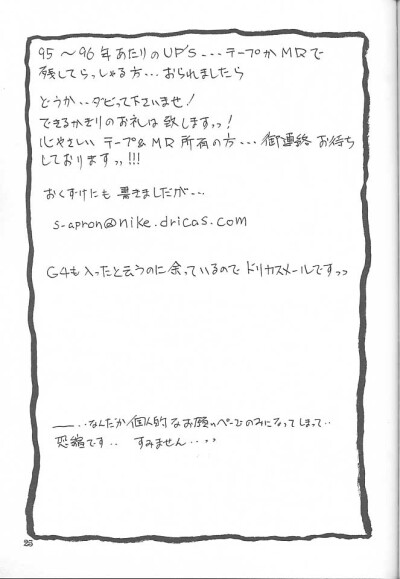 95～96年あたりのUP'S---テープかMDで
残してらっしゃる方…おられましたら
どうか‥ダビって下さいませ!
できるかぎりのお礼は致しますッ!
心やさしいテープ&MD所有の方…御連絡お待ち
しておりますッ!!!
おくずけにも書きましたが…
s-apron@nike.dricas.com
G4も入ったと云うのに余っているのでドリカスメールですッ
――‥なんだか個人的なお願いページのみになってしまって‥
恐縮です‥ すみません‥‥
25